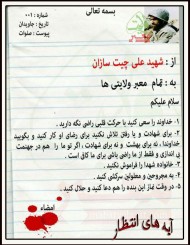 بسمه تعالی
شماره : ۰۰۱
تاریخ : جاویدان
پیوست : صلوات
از : شهید علی چیت سازان
به : تمام معبر ولایتی ها
سلام علیکم
۱. خداوند را سعی کنید با حرکت قلبی راضی نگه دارید .
۲. برای شهادت و یا رفتن تلاش نکنید برای رضای او کار کنید و بگویید
خداوندا ، نه برای بهشت و نه برای شهادت ، اگر تو ما را هم در جهنمت
بی اندازی و فقط از ما راضی باشی برای ما کافی است .
۳. خانواده شهدا را فراموش نکنید .
۴. به مجروحین و معلولین سرکشی کنید .
۵. در وقت نماز این بنده را هم دعا کنید و حلال کنید .
امضاء
آیه های انتظار